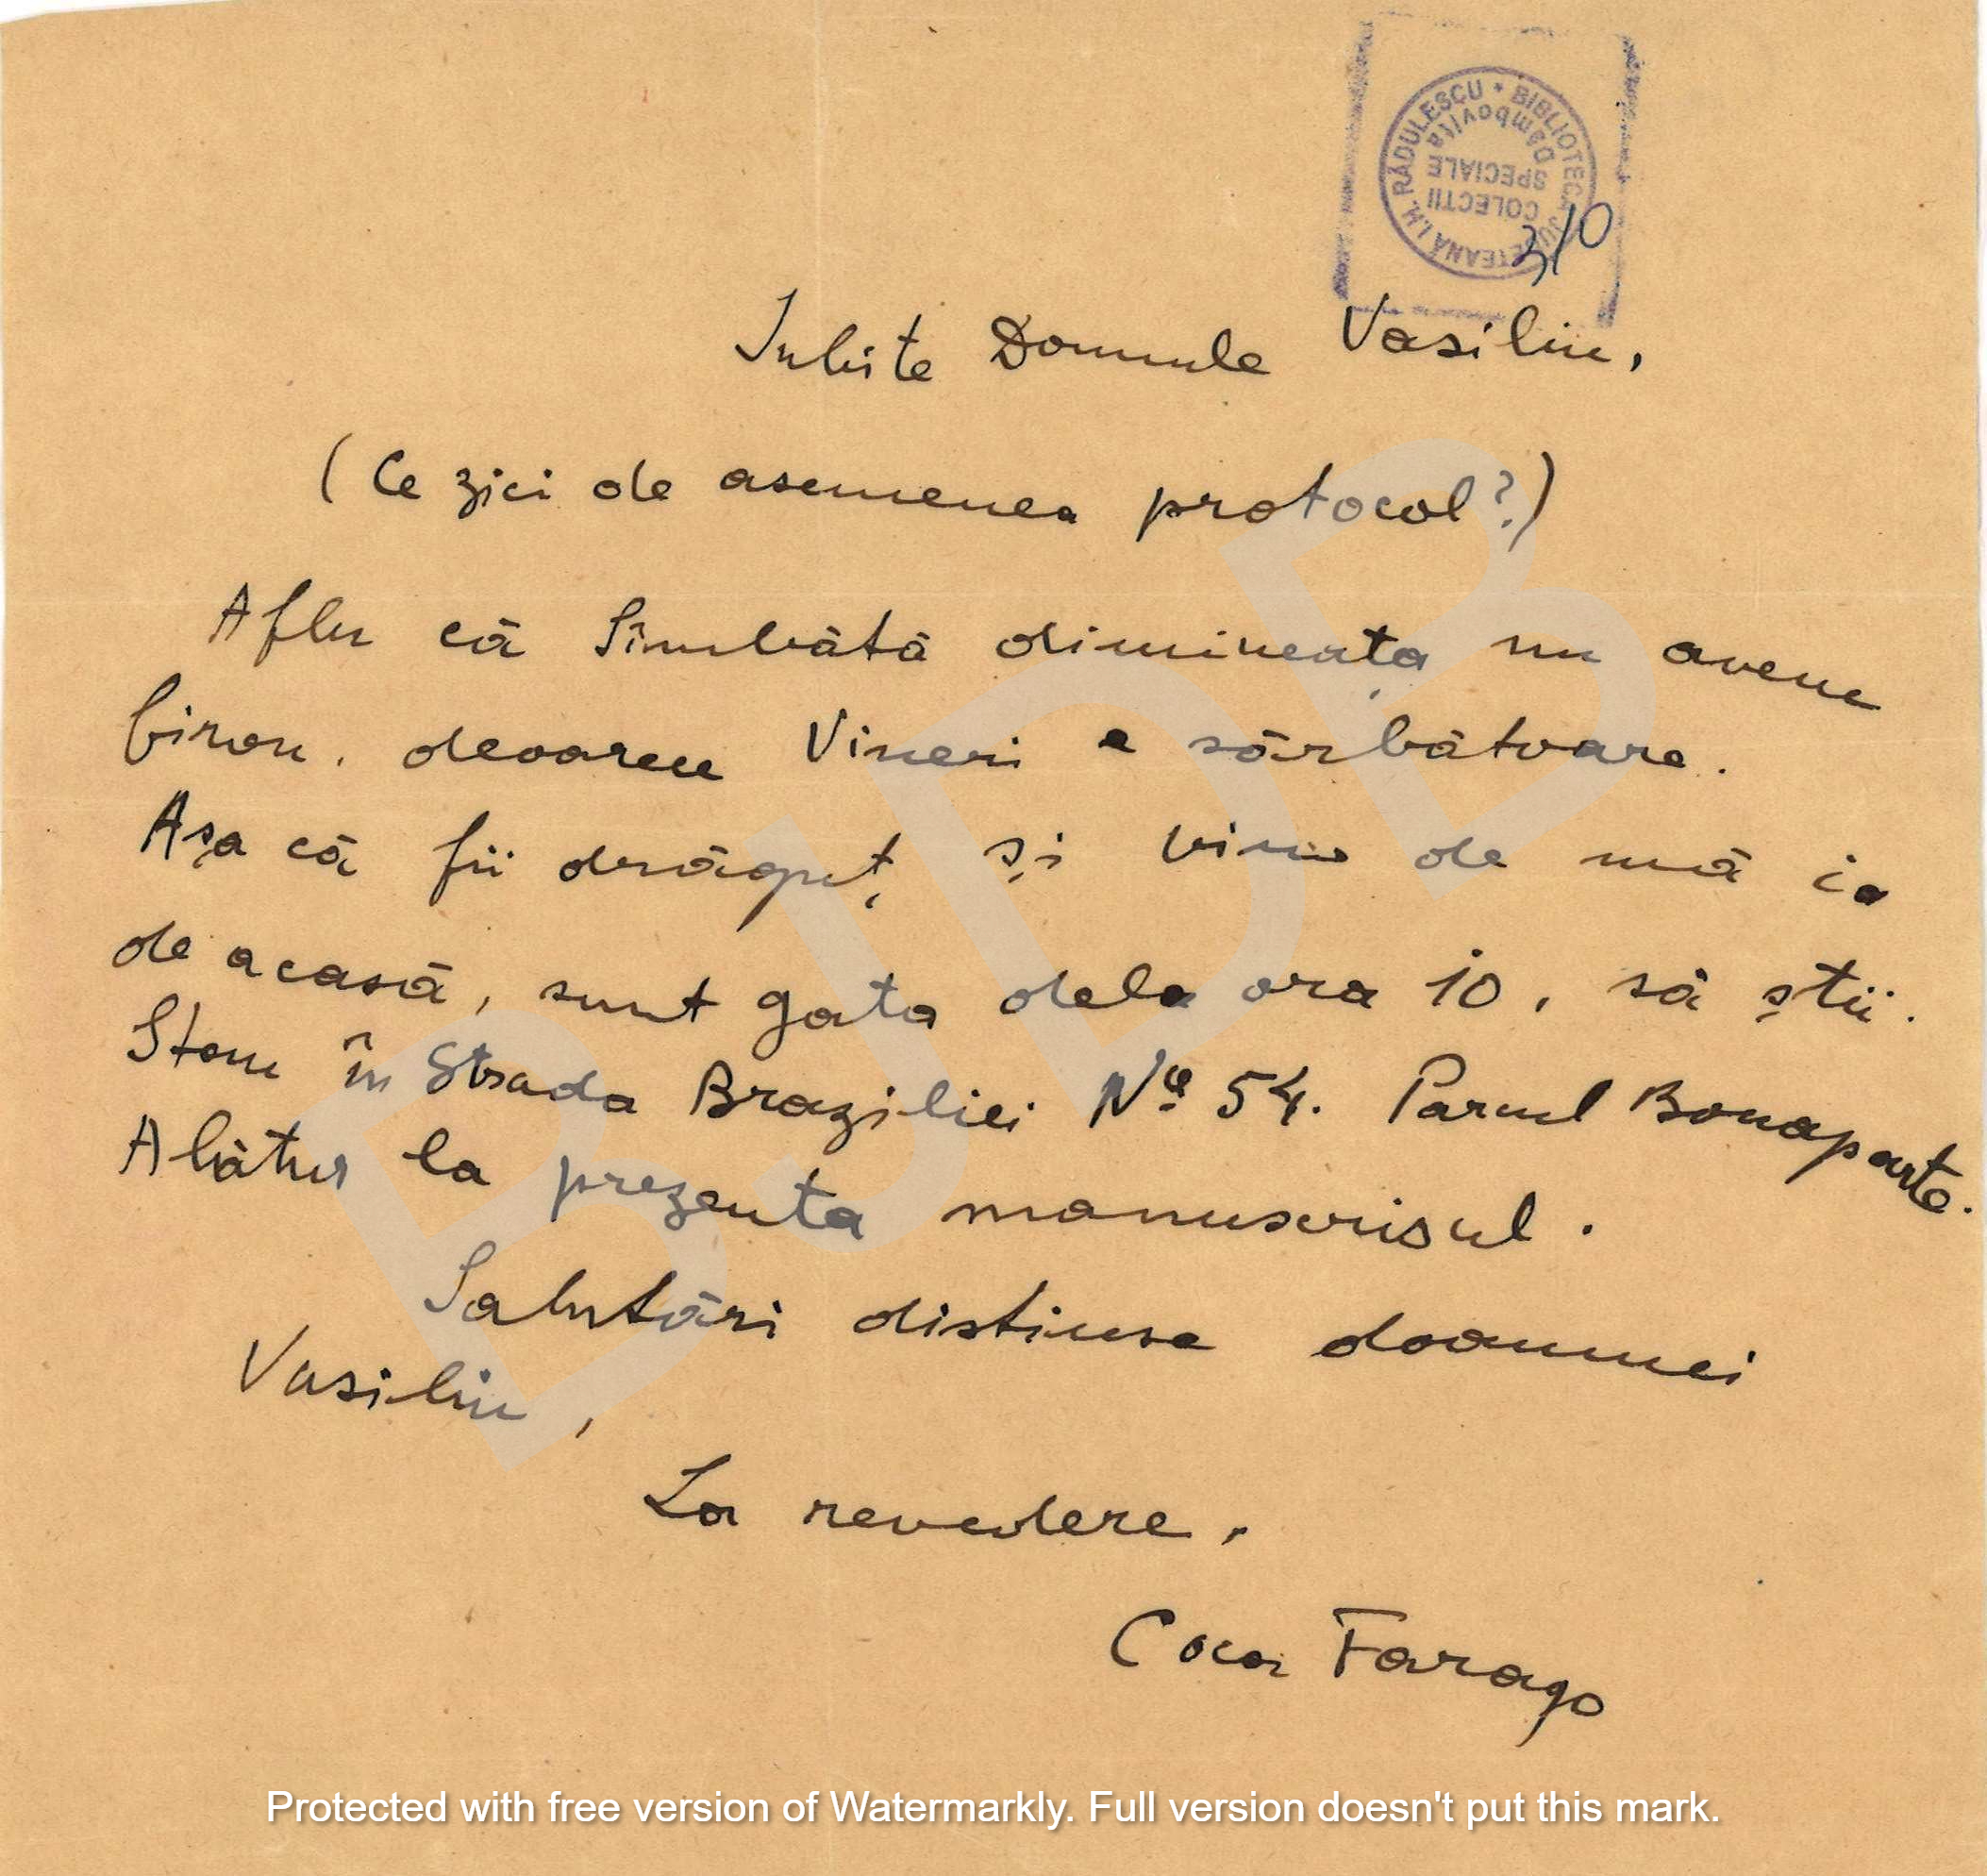 BIBLIOTECA JUDEȚEANĂ I.H. RĂDULESCU *
Dâmbovița
COLECTII
SPECIALE
310
Iubite Domnule Vasiliu,
(Ce zici de asemenea protocol?)
Aflu că Sîmbătă dimineața nu avem
birou, deoarece Vineri e sărbătoare.
Așa că fii drăguț și vino de mă ia
de acasă, sunt gata dela ora 10, să știi.
Stau în Strada Braziliei No 54. Parcul Bonaparte.
Alătur la prezenta manuscrisul.
Salutări distinse doamnei
Vasiliu,
La revedere,
Coca Farago
BJDB
Protected with free version of Watermarkly. Full version doesn't put this mark.